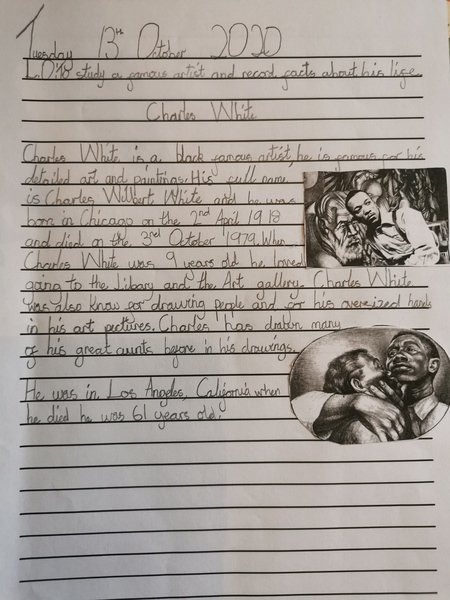 Tuesday 13th October 2020
L.O: To study a famous artist and record facts about his life
Charles White
Charles White is a black famous artist, he is famous for his
detailed art and paintings. His full name
is Charles Wilbert White and he was
born in Chicago on the 2nd April 1918
and died on the 3rd October 1979. When
Charles White was 9 years old he loved
going to the Libary and the Art gallery. Charles White
was also know for drawing people and for his oversized hands
in his art pictures. Charles has drawn many
of his great aunts before in his drawings.
He was in Los Angeles, California when
he died he was 61 years old.